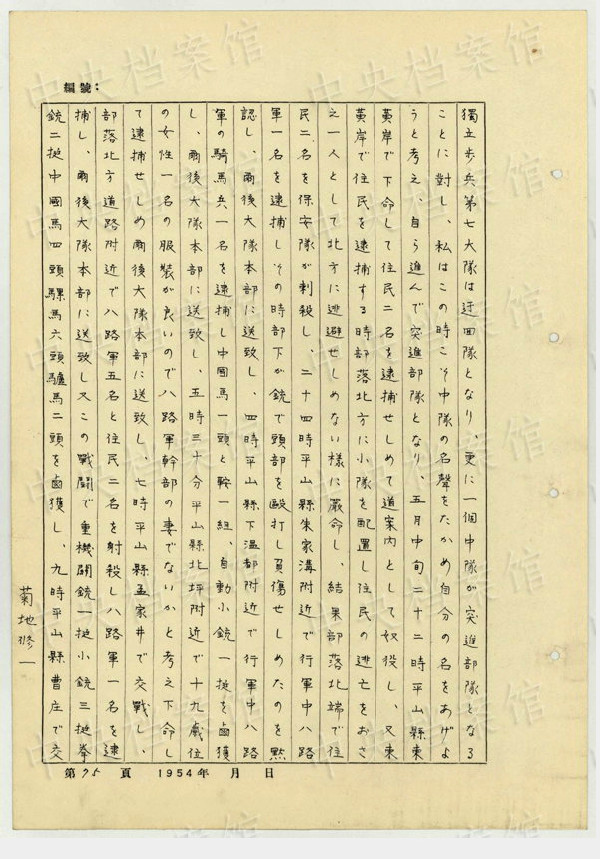 編號：
獨立步兵第七大隊は迂回隊となり、更に一個中隊が突進部隊となる
ことに對し、私はこの時こそ中隊の名聲をたかめ自分の名をあげよ
うと考え、自ら進んで突進部隊となり、五月中旬二十二時平山縣東
黄岸で下命して住民二名を逮捕せしめて道案内として奴役し、又東
黄岸で住民を逮捕する時部落北方に小隊を配置し住民の逃亡をおさ
え一人として北方に逃避せしめない樣に嚴命し、結果部落北端で住
民二名を保安隊が刺殺し、二十四時平山縣朱家溝附近で行軍中八路
軍一名を逮捕しその時部下が銃で頭部を毆打し負傷せしめたのを黙
認し、爾後大隊本部に送致し、四時平山縣下温都附近で行軍中八路
軍の騎馬兵一名を逮捕し中國馬一頭と鞍一組、自動小銃一挺を鹵獲
し、爾後大隊本部に送致し、五時三十分平山縣北坪附近で十九歳位
の女性一名の服裝が良いので八路軍幹部の妻でないかと考え下命し
て逮捕せしめ爾後大隊本部に送致し、七時平山縣孟家井で交戰し、
部落北方道路附近で八路軍五名と住民二名を射殺し八路軍一名を逮
捕し、爾後大隊本部に送致し又この戰鬪で重機關銃一挺小銃三挺拳
銃二挺中國馬四頭騾馬六頭驢馬二頭を鹵獲し、九時平山縣曹庄で交
菊地修一
第75頁 1954年 月 日
中央档案馆